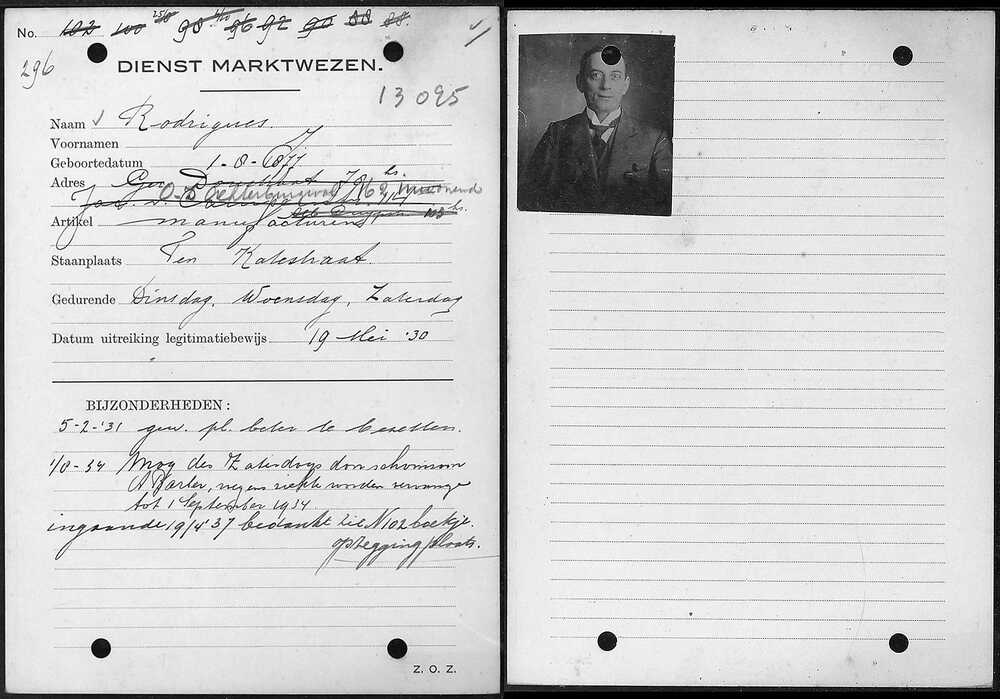 No. 102 100 25/8 98 96 92 90 88 88.
296
DIENST MARKTWEZEN.
13095
Naam Rodrigues. J
Voornamen
Geboortedatum 1-8-1877
Adres Ger. Doustraat 78 hs.
O-Z 62 inwonend
Artikel manufacturen hs.
Staanplaats Ten Katestraat.
Gedurende Dinsdag, Woensdag, Zaterdag
Datum uitreiking legitimatiebewijs 19 Mei '30
BIJZONDERHEDEN:
5-2-'31 gew. pl. beter te bezetten.
1/8-34 Mag des Zaterdags door schoonzoon
A Parler, wegens ziekte worden vervange
tot 1 September 1934.
ingaande 19/4 '37 bedankt zie N102 boekje.
opzegging plaats.
Z. O. Z.